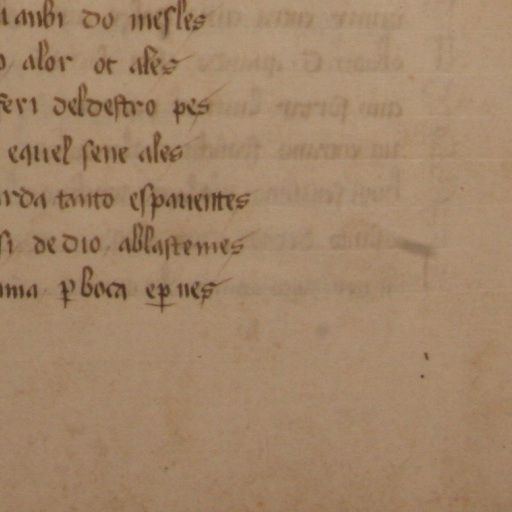 anbi do mesles
alor ot ales
feri deldestro pes
equel sene ales
rda tanto espauentes
si de dio ablastemes
ma p boca ep nes